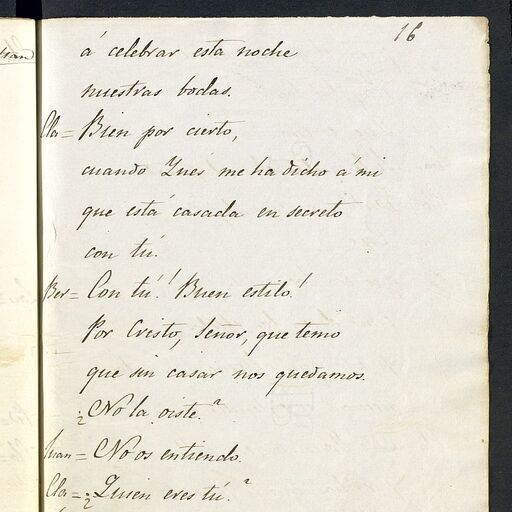 16
á celebrar esta noche
nuestras bodas.
Cla= Bien por cierto,
cuando Ynes me ha dicho á mi
que está casada en secreto
con tú.
Ber= Con tú! Buen estilo!
Por Cristo, Señor, que temo
que sin casar nos quedamos.
¿No la oiste?
Juan= No os entiendo.
Cla= ¿Quien eres tú?